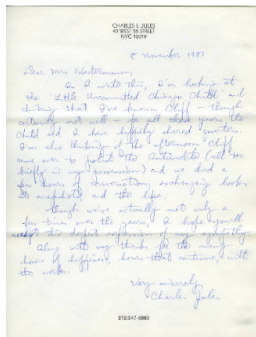 CHARLES S. JULES
40 WEST 56 STREET
NYC 10019
November 1981
Dear Mrs. Westermann,
As I write this, I'm looking at
the "Little Uncommitted Chicago Child" and
thinking that I've known Cliff — though
certainly not well — for all these years the
Child and I have happily shared quarters.
I'm also thinking of the afternoon Cliff
came over to the
briefly in my possession) and we had a
few hours of conversation, exchanging books
snapshots and the
Though we've actually met only a
few times over the years, I hope you will
accept this expression of my sympathy
Along with my thanks for the many
hours of happiness, hours that continue, with
the works.
Very sincerely,
Charles Jules